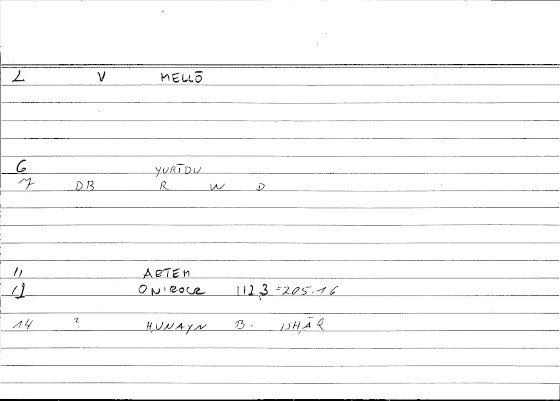 L V MELLŌ
6 YURĪDU
7 DB R W D
11 ARTEM
12 ONIROCR 112,3 =205.16
14 ? ḤUNAYN B. ISḤĀQ